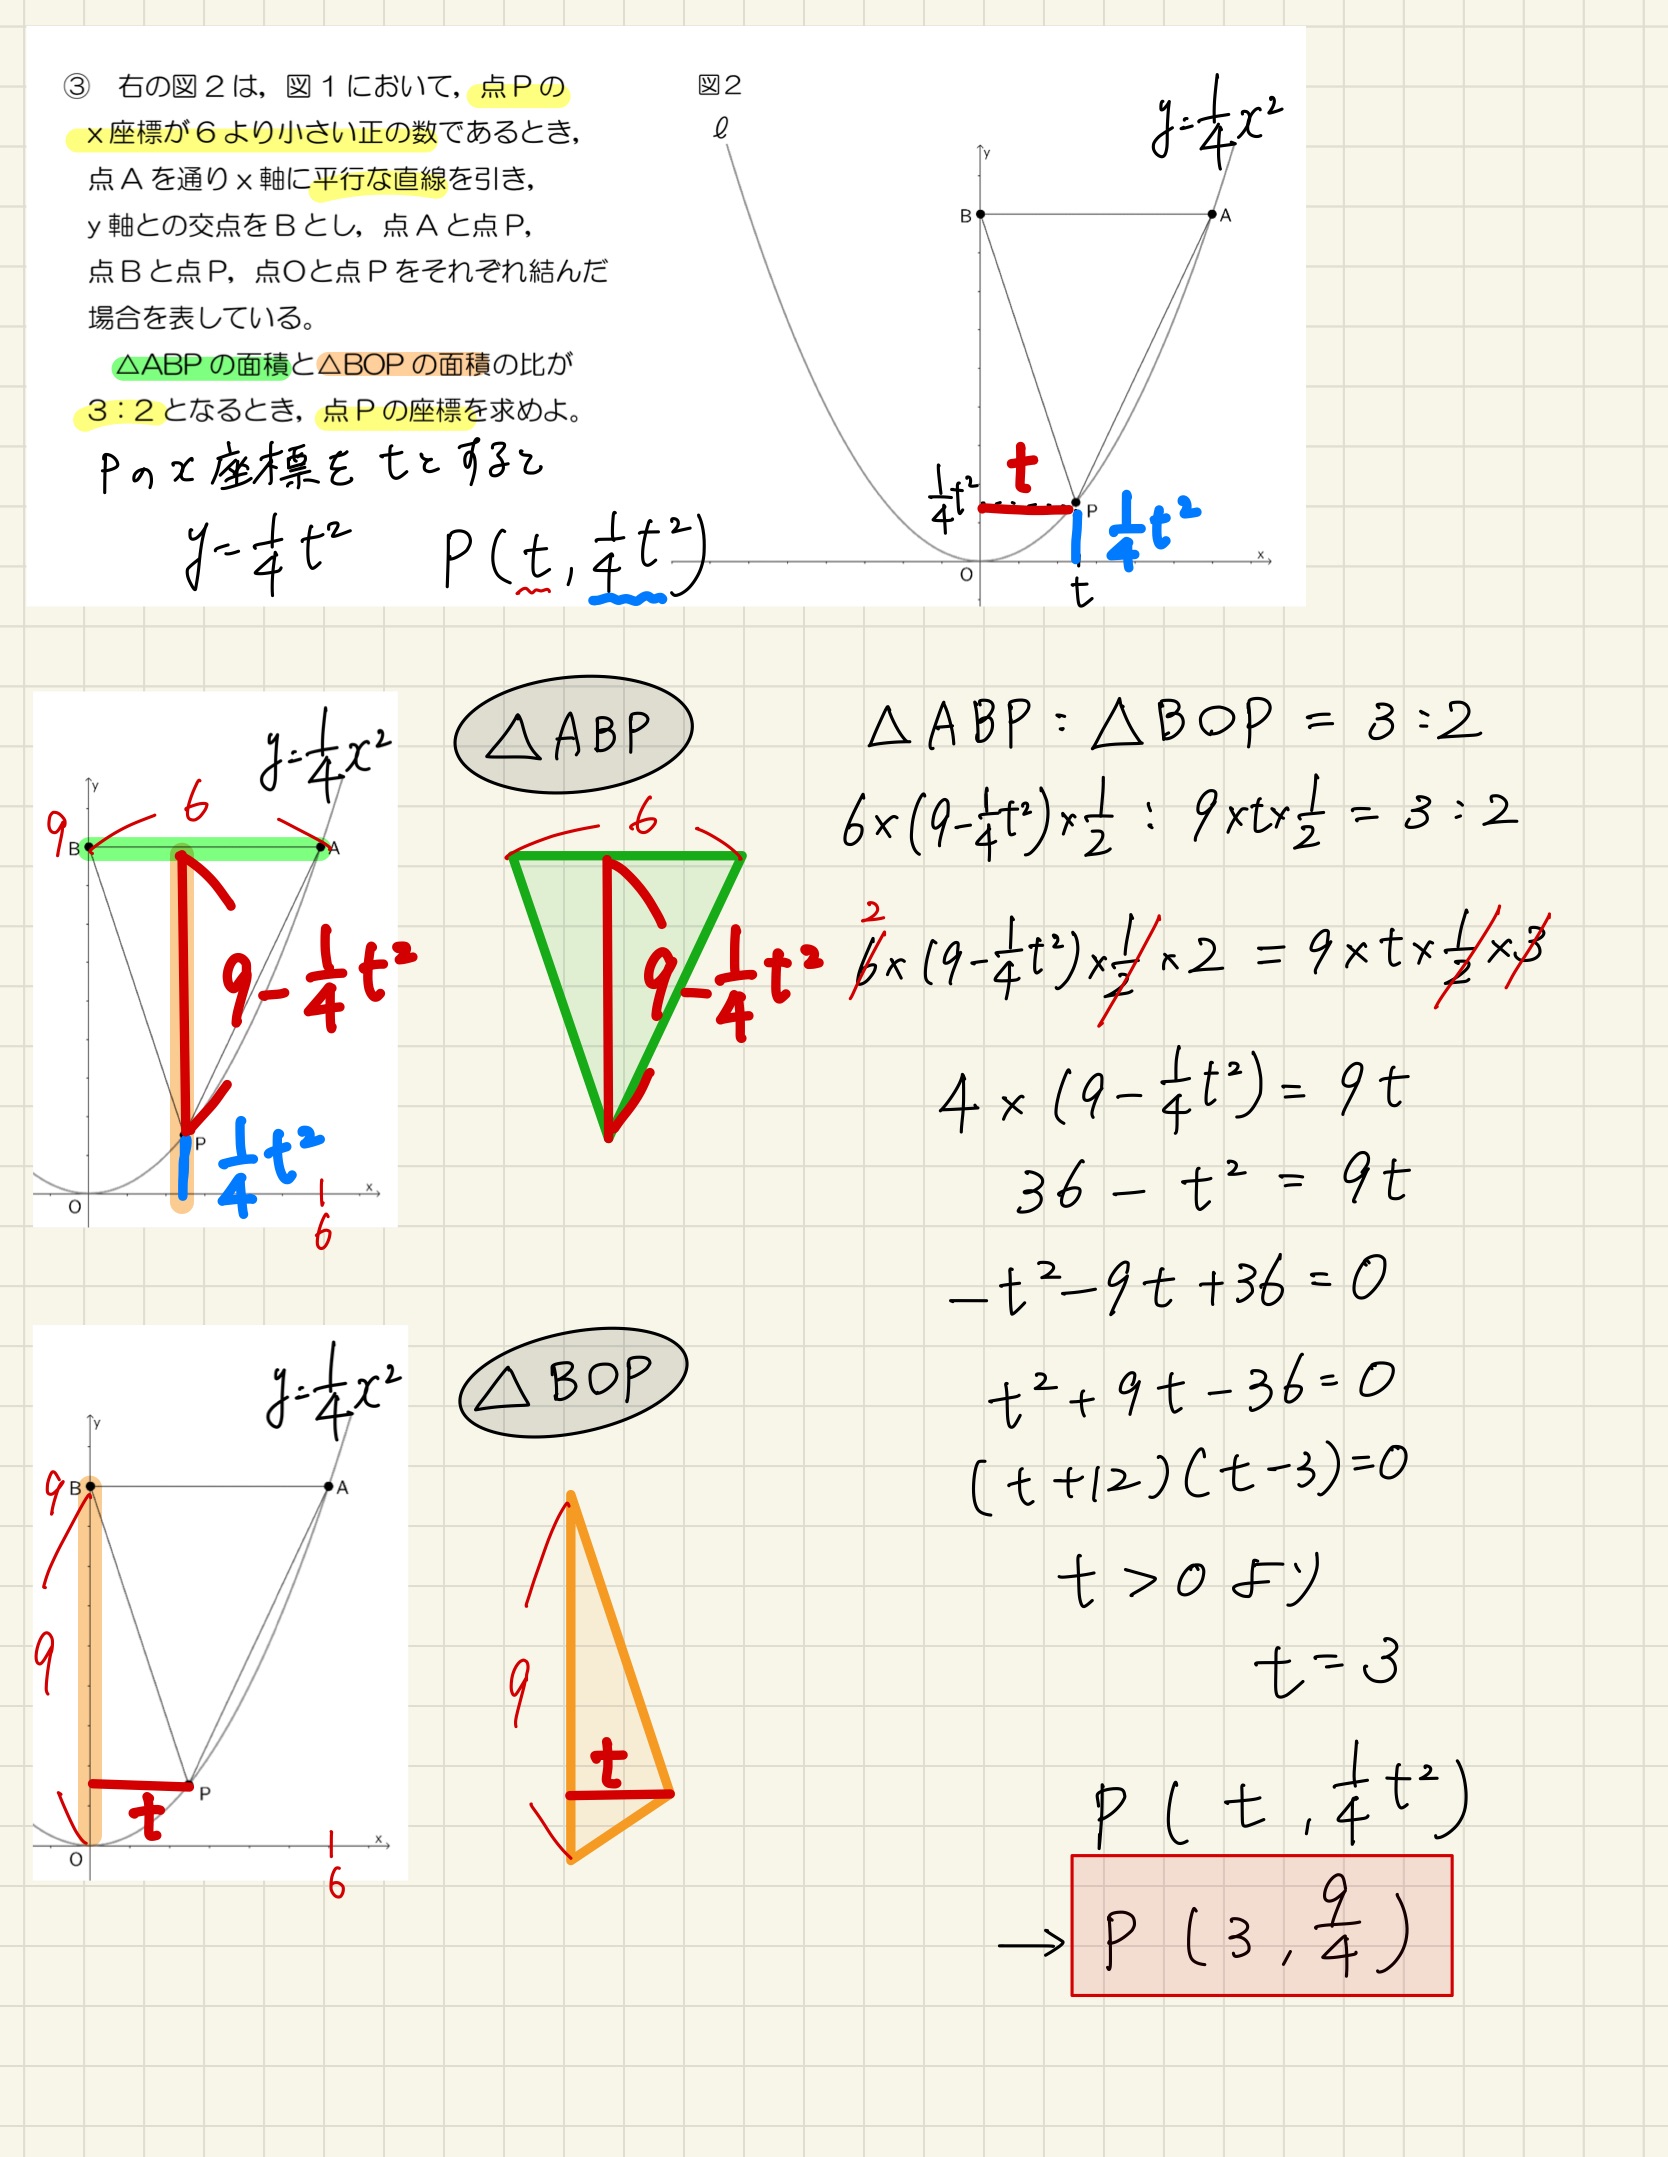 ③ 右の図2は，図1において，点Pの
x座標が6より小さい正の数であるとき，
点Aを通りx軸に平行な直線を引き，
y軸との交点をBとし，点Aと点P，
点Bと点P，点Oと点Pをそれぞれ結んだ
場合を表している。
△ABPの面積と△BOPの面積の比が
3：2となるとき，点Pの座標を求めよ。
Pのx座標をtとすると
y=1/4t² P(t, 1/4t²)
図2
ℓ
y=1/4x²
y
B A
t
1/4t²
P 1/4t²
x
O
t
y=1/4x²
y
6
9
B A
9-1/4t²
P 1/4t²
x
O
6
△ABP
6
9-1/4t²
y=1/4x²
y
9 B A
9
P
t
x
O
6
△BOP
9
t
△ABP：△BOP = 3：2
6×(9-1/4t²)×1/2：9×t×1/2 = 3：2
2
6×(9-1/4t²)×1/2×2 = 9×t×1/2×3
4×(9-1/4t²) = 9t
36-t² = 9t
-t²-9t+36=0
t²+9t-36=0
(t+12)(t-3)=0
t>0より
t=3
P(t, 1/4t²)
→ P(3, 9/4)